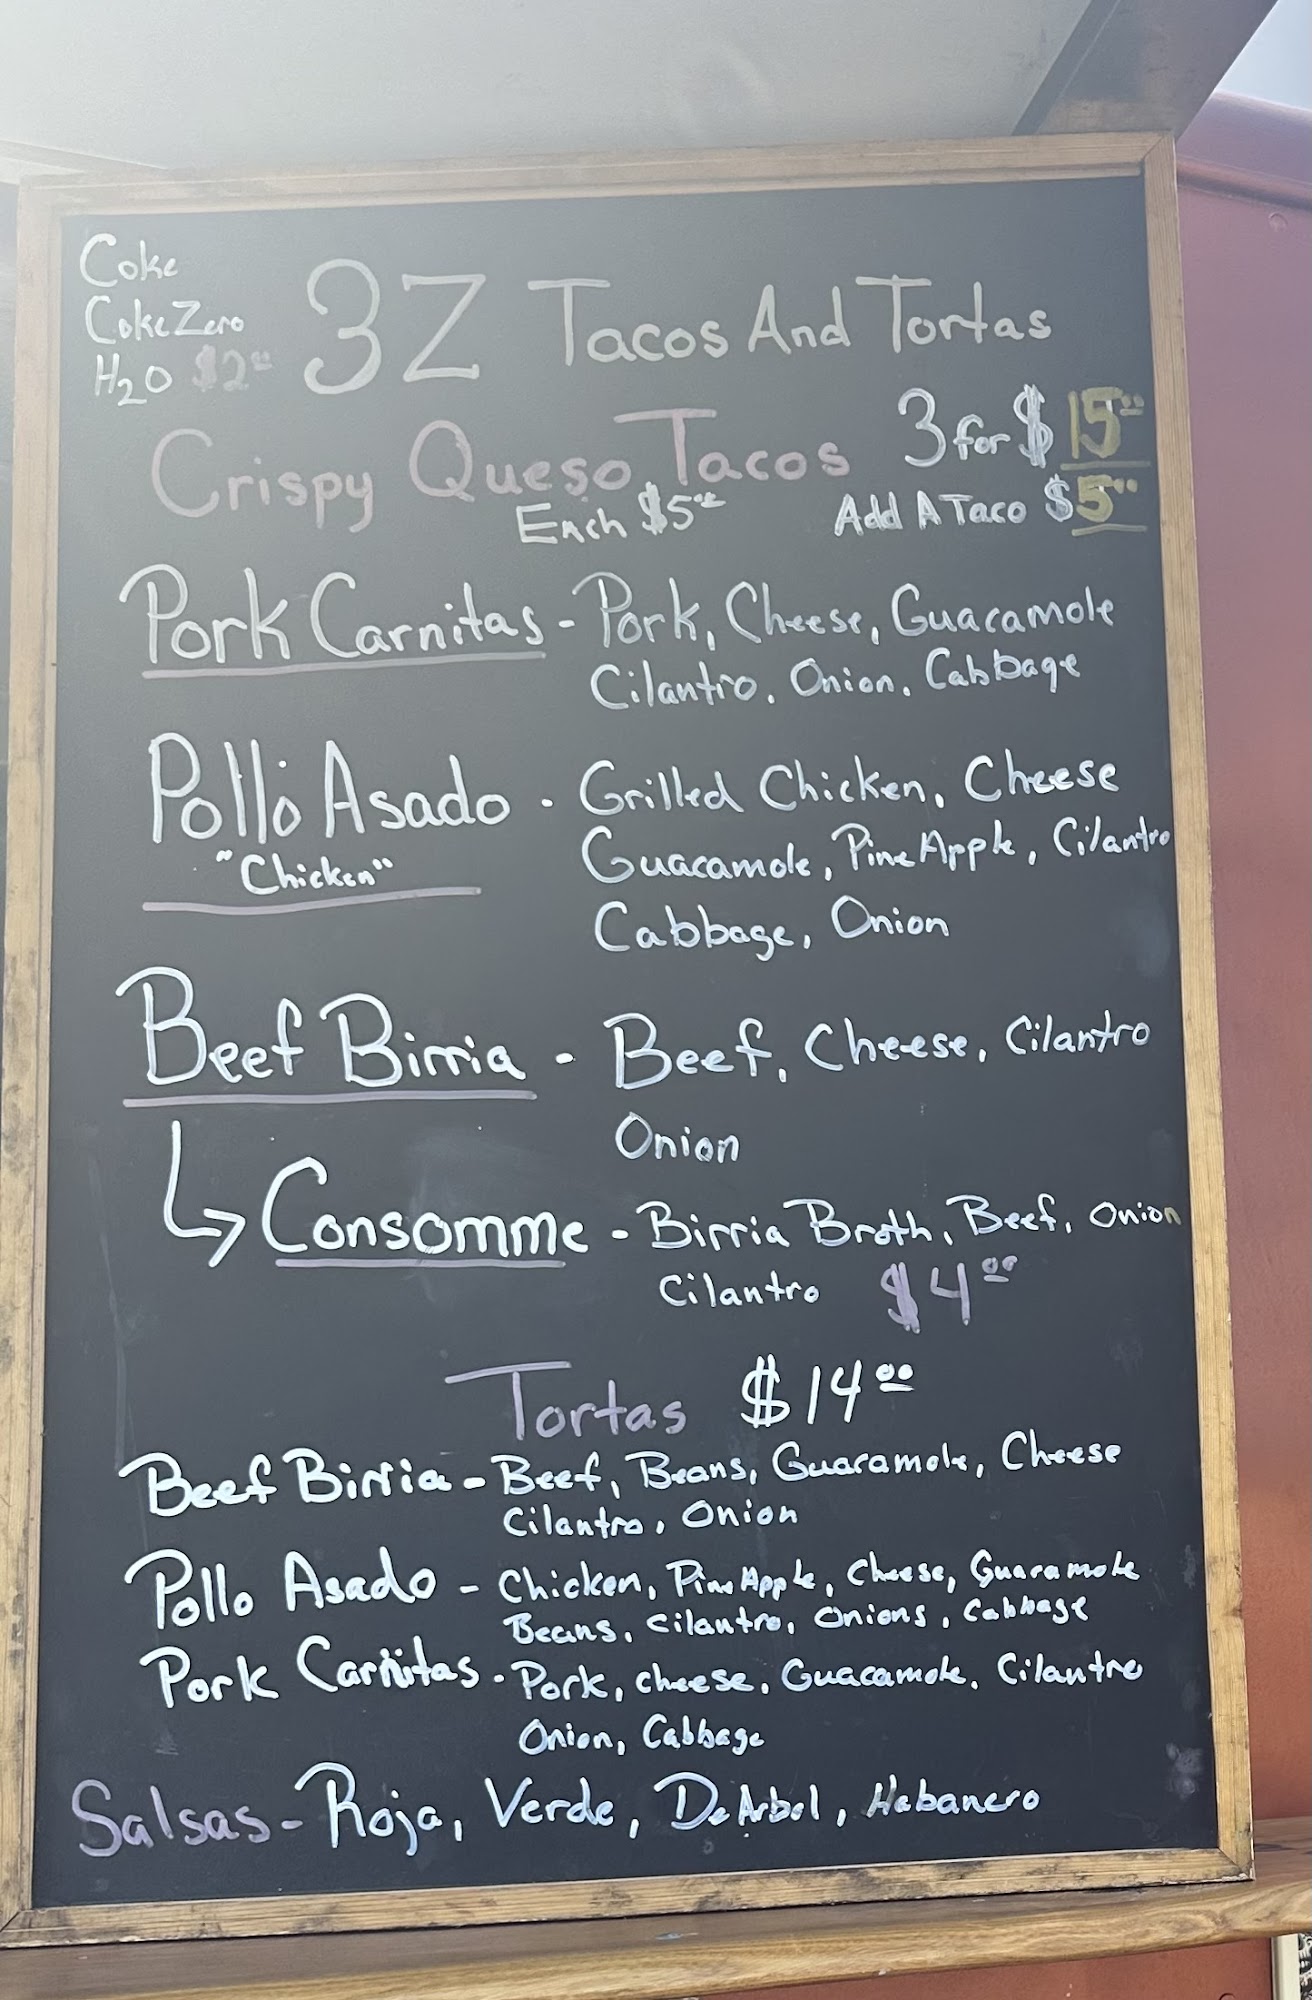 Coke
Coke Zero
H2O $2.00
3Z Tacos And Tortas
Crispy Queso Tacos
Each $5.00
3 for $15.00
Add A Taco $5.00
Pork Carnitas - Pork, Cheese, Guacamole
Cilantro, Onion, Cabbage
Pollo Asado - Grilled Chicken, Cheese
"Chicken"
Guacamole, PineApple, Cilantro
Cabbage, Onion
Beef Birria - Beef, Cheese, Cilantro
Onion
Consomme - Birria Broth, Beef, Onion
Cilantro $4.00
Tortas $14.00
Beef Birria - Beef, Beans, Guacamole, Cheese
Cilantro, Onion
Pollo Asado - Chicken, PineApple, Cheese, Guacamole
Beans, Cilantro, Onions, Cabbage
Pork Carnitas - Pork, cheese, Guacamole, Cilantro
Onion, Cabbage
Salsas - Roja, Verde, De Arbol, Habanero